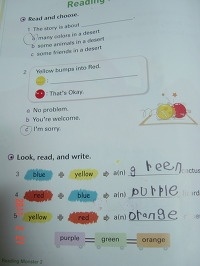 Reading
Read and choose.
1 The story is about
a many colors in a desert
b some animals in a desert
c some friends in a desert
2 Yellow bumps into Red.
:
: That's Okay.
a No problem.
b You're welcome.
c I'm sorry.
Look, read, and write.
3 blue yellow a(n) green
4 red blue a(n) purple
5 yellow red a(n) orange
purple green orange
Reading Monster 2